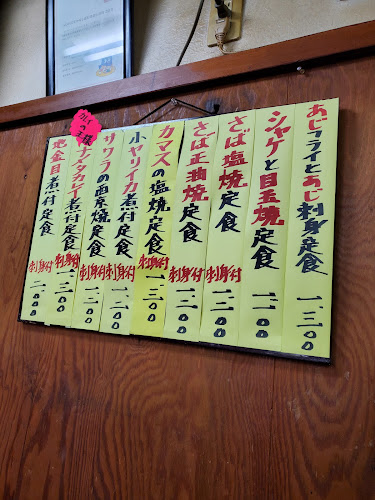 あじフライとあじ刺身定食 一、三〇〇
シャケと目玉焼定食 一、二〇〇
さば塩焼定食 刺身付 一、二〇〇
さば正油焼定食 刺身付 一、二〇〇
カマスの塩焼定食 刺身付 一、三〇〇
小ヤリイカ煮付定食 刺身付
サワラの西京焼定食 刺身付
カレイ煮付定食 刺身付
地金目煮付定食 刺身付 二、〇〇〇